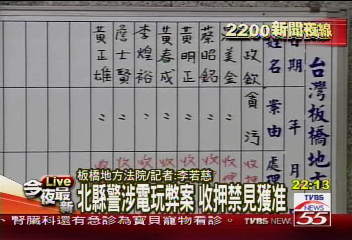 2200新聞夜線
台灣板橋地方
姓名
案由
年 月
處理
政飲
貪污
江美金
蔡昭銘
黃明正
黃春成
李煌裕
詹士賢
黃正雄
板橋地方法院/記者:李若慈
Live
今夜最新
北縣警涉電玩弊案 收押禁見獲准
22:13
TVBS
NEWS
55
、腎臟科還有急診為寶貝寵物看診。
TVBS NEWS